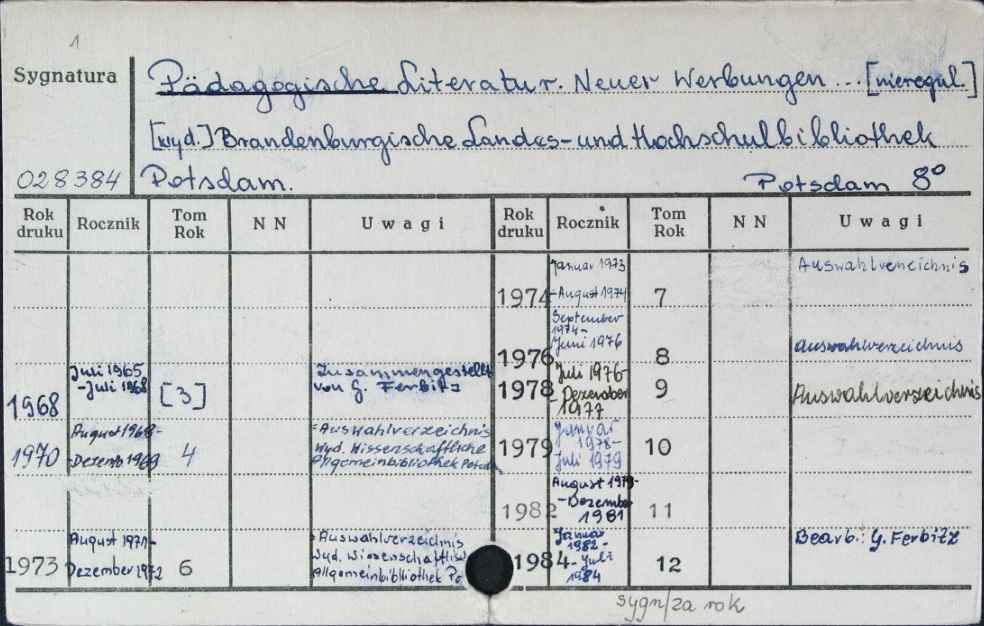 1
Sygnatura
Pädagogische Literatur. Neuer Werbungen ... [nieregul.]
[wyd.] Brandenburgische Landes- und Hochschulbibliothek
028384 Potsdam. Potsdam 8°
Rok druku Rocznik Tom Rok N N Uwagi Rok druku Rocznik Tom Rok N N Uwagi
1968 Juli 1965 - Juli 1968 [3] Zusammengestellt von G. Ferbitz
1970 August 1968 - Dezemb 1969 4 = Auswahlverzeichnis Wyd. Wissenschaftliche Allgemeinbibliothek
1973 August 1971 - Dezember 1972 6 = Auswahlverzeichnis Wyd. Wissenschaftliche Allgemeinbibliothek Po
1974 Januar 1973 - August 1974 7 Auswahlverzeichnis
1976 September 1974 - Juni 1976 8 Auswahlverzeichnis
1978 Juli 1976 - Dezember 1977 9 Auswahlverzeichnis
1979 Januar 1978 - Juli 1979 10
1982 August 1979 - Dezember 1981 11
1984 Januar 1982 - Juli 1984 12 Bearb.: G. Ferbitz
sygn/za rok